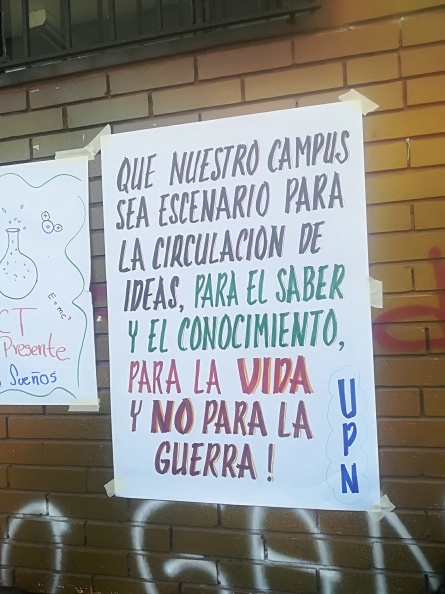 QUE NUESTRO CAMPUS
SEA ESCENARIO PARA
LA CIRCULACION DE
IDEAS, PARA EL SABER
Y EL CONOCIMIENTO,
PARA LA VIDA
Y NO PARA LA
GUERRA!
UPN
E=mc²
CT
Presente
Sueños